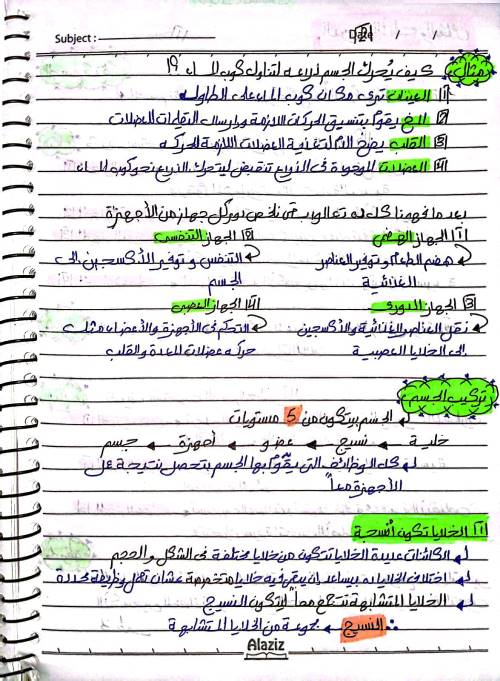 Subject :
Date / /
2
مثال كيف يُحرك الجسم ذراعه لتناول كوب الماء ؟!
1 العينان ترى مكان كوب الماء على الطاولة
2 المخ يقوم بتنسيق الحركات اللازمة وإرسال التعليمات للعضلات
3 القلب يضخ الدم لتغذية العضلات اللازمة للحركة
4 العضلات الموجودة في الذراع تنقبض ليتحرك الذراع نحو كوب الماء
بعد ما فهمنا كل ده تعالوا بقى نلخص دور كل جهاز من الأجهزة
1 الجهاز الهضمي 2 الجهاز التنفسي
هضم الطعام وتوفير العناصر التنفس وتوفير الأكسجين إلى
الغذائية الجسم
3 الجهاز الدوري 4 الجهاز العصبي
نقل العناصر الغذائية والأكسجين التحكم في الأجهزة والأعضاء مثل
إلى الخلايا العصبية حركة عضلات المعدة والقلب
تركيب الجسم
الجسم بيتكون من 5 مستويات
خلية ← نسيج ← عضو ← أجهزة ← جسم
كل الوظائف التي يقوم بها الجسم بتحصل نتيجة عمل
الأجهزة معاً
1 الخلايا تكون أنسجة
الكائنات عديدة الخلايا تتكون من خلايا مختلفة في الشكل والحجم
اختلاف الخلايا ده بيساعد إن يبقى فيه خلايا متخصصة عشان تعمل وظيفة محددة
الخلايا المتشابهة تتجمع معاً لتكون النسيج
∴ النسيج ← مجموعة من الخلايا المتشابهة
Alaziz